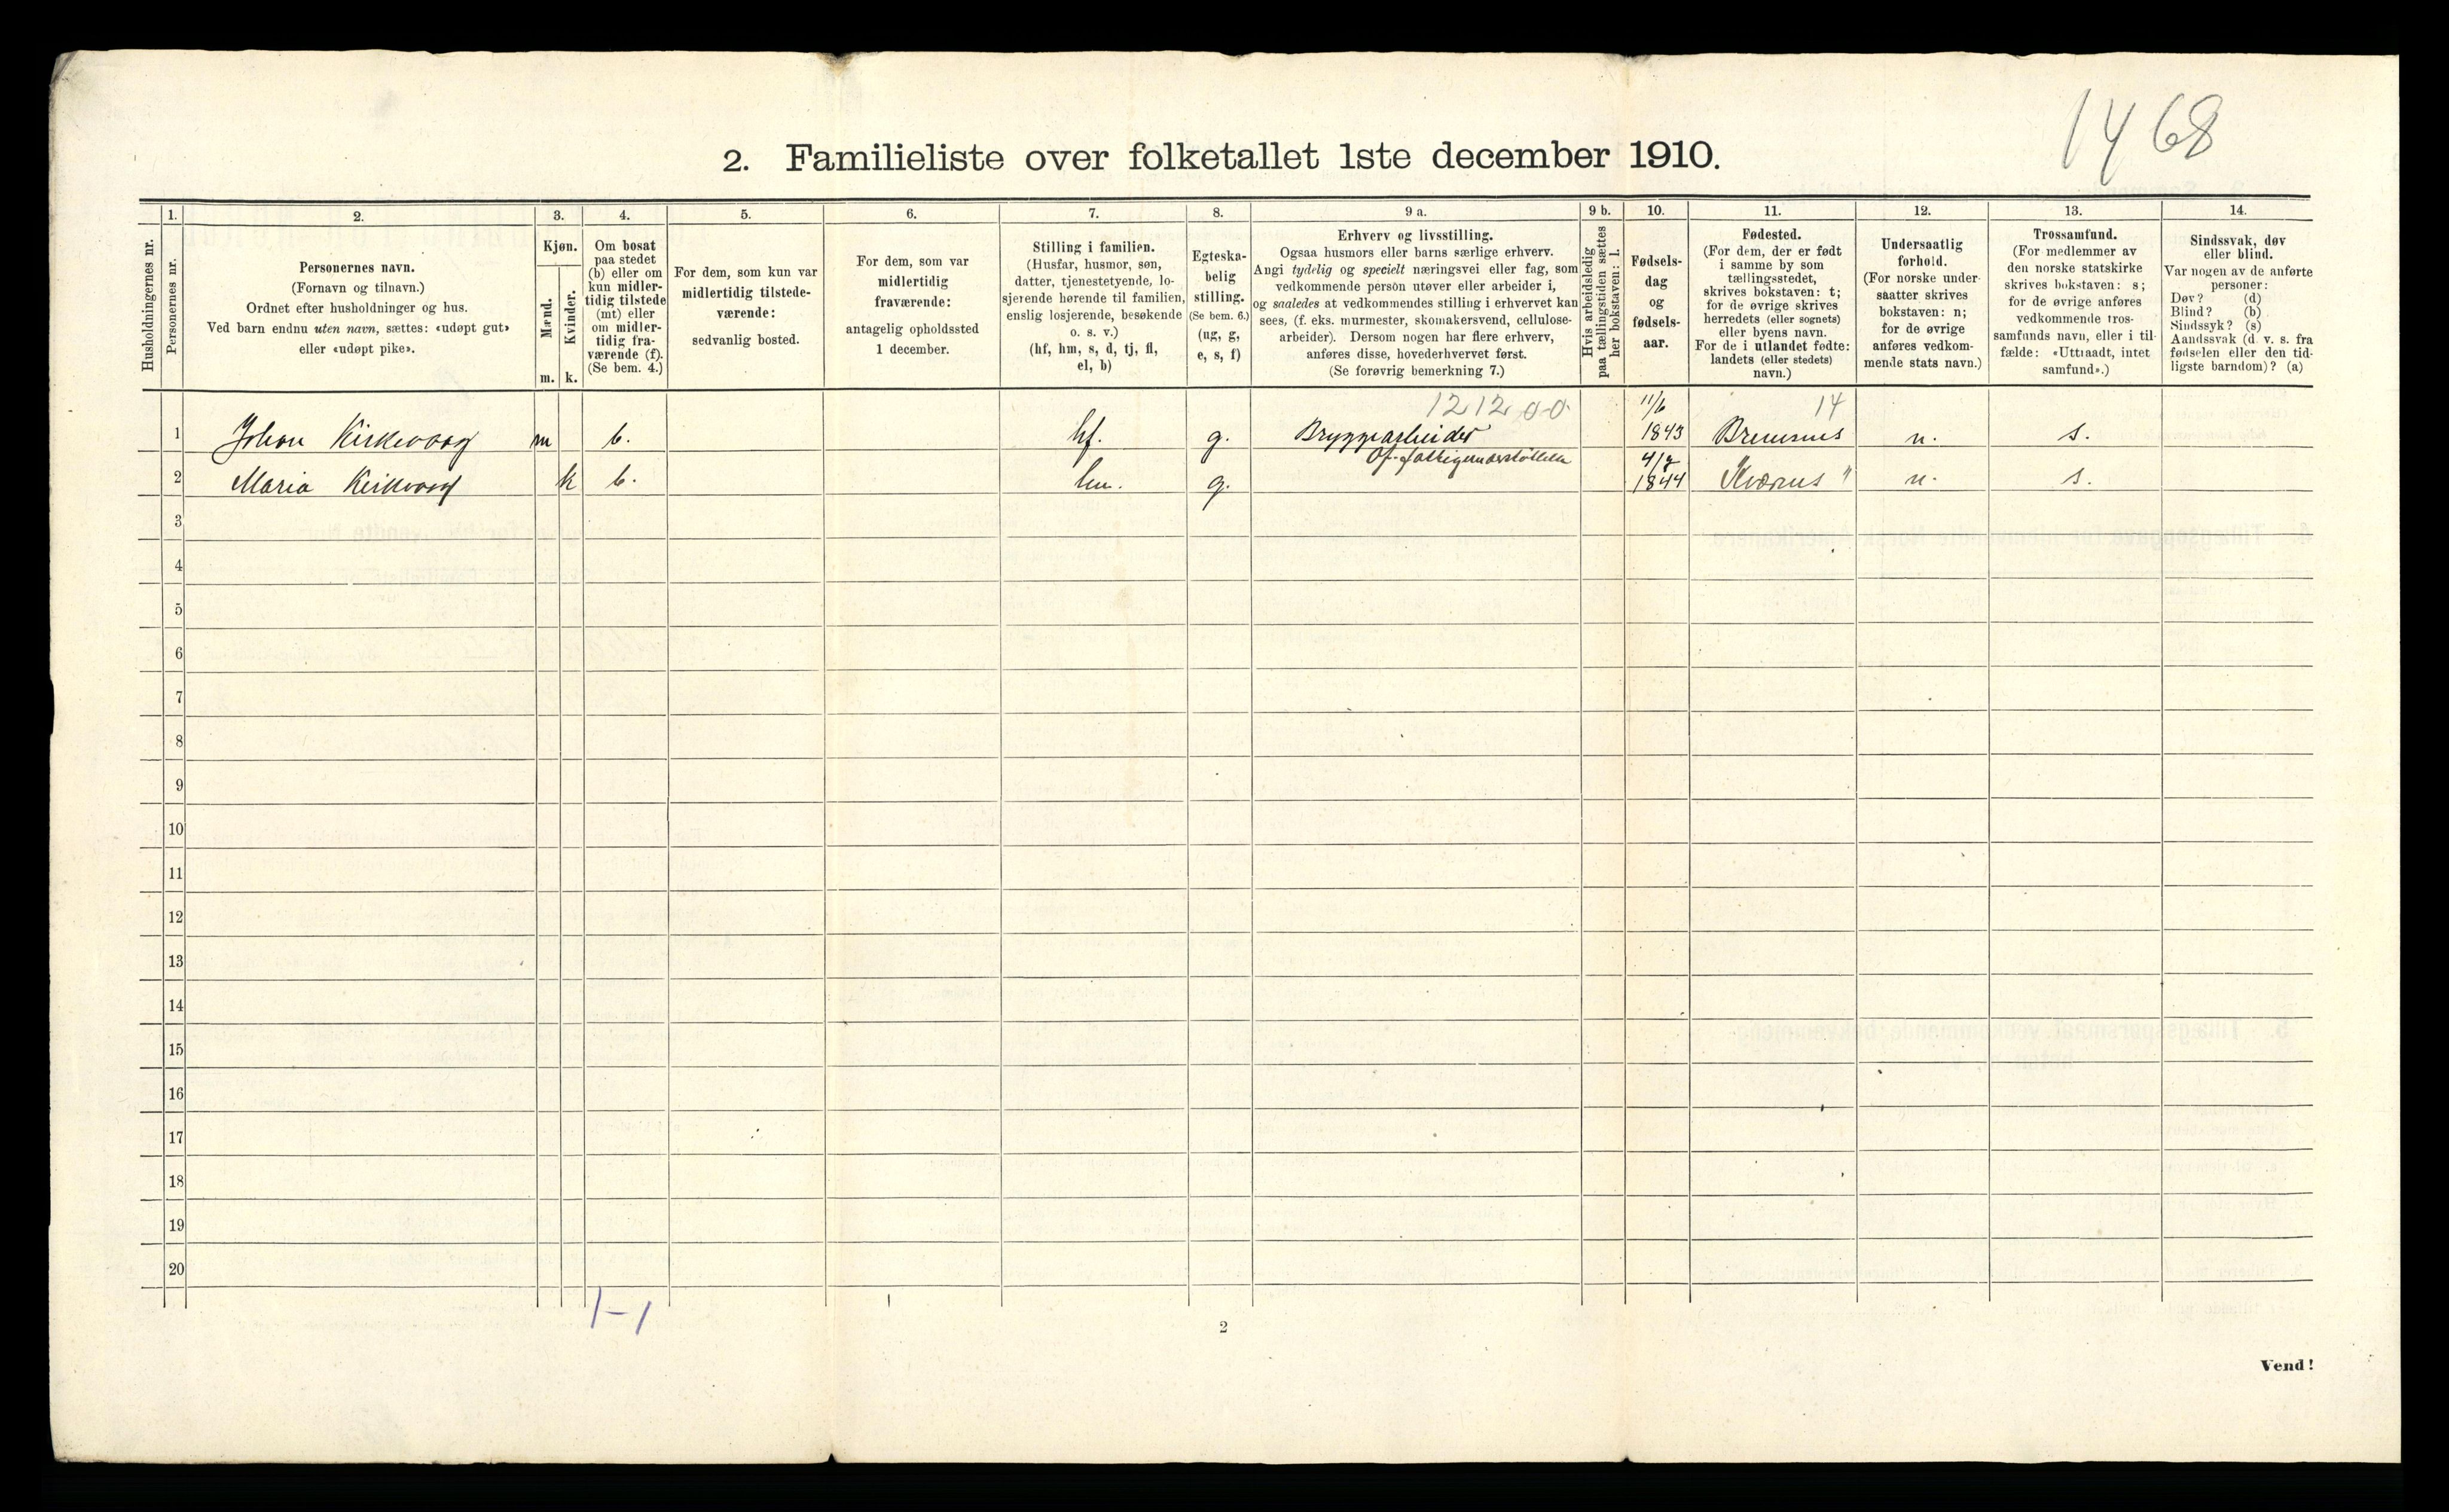 1468
2. Familieliste over folketallet 1ste december 1910.
Husholdningernes nr.
1.
Personernes nr.
2.
Personernes navn.
(Fornavn og tilnavn.)
Ordnet efter husholdninger og hus.
Ved barn endnu uten navn, sættes: «udøpt gut»
eller «udøpt pike».
3.
Kjøn.
Mænd.
Kvinder.
m. k.
4.
Om bosat
paa stedet
(b) eller om
kun midler-
tidig tilstede
(mt) eller
om midler-
tidig fra-
værende (f).
(Se bem. 4.)
5.
For dem, som kun var
midlertidig tilstede-
værende:
sedvanlig bosted.
6.
For dem, som var
midlertidig
fraværende:
antagelig opholdssted
1 december.
7.
Stilling i familien.
(Husfar, husmor, søn,
datter, tjenestetyende, lo-
sjerende hørende til familien,
enslig losjerende, besøkende
o. s. v.)
(hf, hm, s, d, tj, fl,
el, b)
8.
Egteska-
belig
stilling.
(Se bem. 6.)
(ug, g,
e, s, f)
9 a.
Erhverv og livsstilling.
Ogsaa husmors eller barns særlige erhverv.
Angi tydelig og specielt næringsvei eller fag, som
vedkommende person utøver eller arbeider i,
og saaledes at vedkommendes stilling i erhvervet kan
sees, (f. eks. murmester, skomakersvend, cellulose-
arbeider). Dersom nogen har flere erhverv,
anføres disse, hovederhvervet først.
(Se forøvrig bemerkning 7.)
9 b.
Hvis arbeidsledig
paa tællingstiden sættes
her bokstaven: l.
10.
Fødsels-
dag
og
fødsels-
aar.
11.
Fødested.
(For dem, der er født
i samme by som
tællingsstedet,
skrives bokstaven: t;
for de øvrige skrives
herredets (eller sognets)
eller byens navn.
For de i utlandet fødte:
landets (eller stedets)
navn.)
12.
Undersaatlig
forhold.
(For norske under-
saatter skrives
bokstaven: n;
for de øvrige
anføres vedkom-
mende stats navn.)
13.
Trossamfund.
(For medlemmer av
den norske statskirke
skrives bokstaven: s;
for de øvrige anføres
vedkommende tros-
samfunds navn, eller i til-
fælde: «Uttraadt, intet
samfund».)
14.
Sindssvak, døv
eller blind.
Var nogen av de anførte
personer:
Døv? (d)
Blind? (b)
Sindssyk? (s)
Aandssvak (d. v. s. fra
fødselen eller den tid-
ligste barndom)? (a)
121200 11/6 14
1 Johan Kirkevaag m b. hf. g. Bryggearbeider 1843 Bremsnes n. s.
Of. fattigunderstøttelse 4/7
2 Maria Kirkvaag k b. hm. g. 1844 Kværnes " n. s.
3
4
5
6
7
8
9
10
11
12
13
14
15
16
17
18
19
20
1-1
2
Vend!